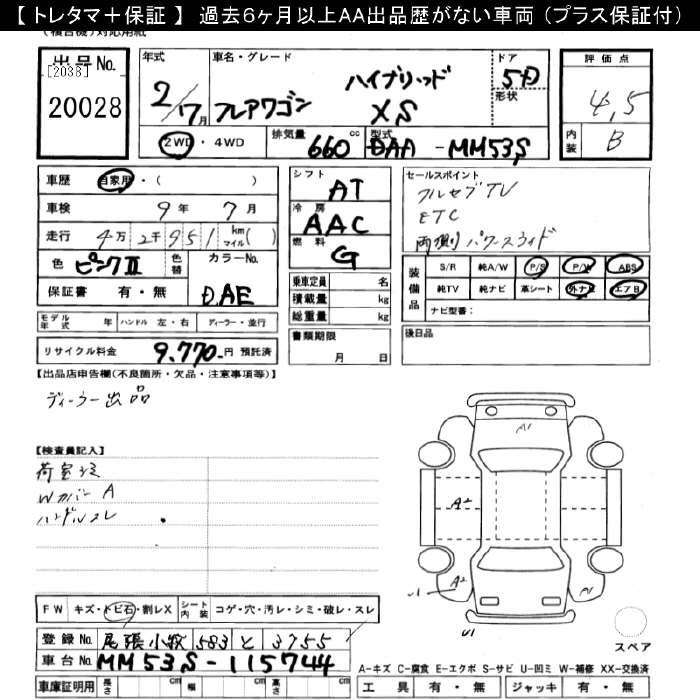 【 トレタマ＋保証 】 過去６ヶ月以上ＡＡ出品歴がない車両（プラス保証付）
出品No. [2038] 20028
年式 2/17月 車名・グレード フレアワゴン ハイブリッド XS ドア 5D 形状
評価点 4.5 内装 B
2WD・4WD 排気量 660 cc 型式 DAA - MM53S
車歴 自家用・( )
車検 9年 7月
走行 4万 2千 9 5 1 km マイル( )
色 ピンクⅡ 色替 カラーNo. DAE
保証書 有・無
シフト AT
冷房 AAC
燃料 G
乗車定員 名
積載量 kg
総重量 kg
書類期限 月 日
セールスポイント
フルセグTV
ETC
両側パワースライド
装備品 S/R 純A/W P/S P/W ABS
純TV 純ナビ 革シート 外ナビ エアB
ナビ型番:
後日品
モデル年式 年 ハンドル 左・右 ディーラー・並行
リサイクル料金 9,770-円 預託済
【出品店申告欄(不良箇所・欠品・注意事項等)】
ディーラー出品
【検査員記入】
荷室
Wカバー A
ハンドルスレ
A1
A2
A2
A1
U1
U1
FW キズ・トビ石・割レX シート内装 コゲ・穴・汚レ・シミ・破レ・スレ
スペア
登録No. 尾張小牧 583 と 3755
車台No. MM53S-115744
車庫証明用 長さ cm 幅 cm 高さ cm
A-キズ C-腐食 E-エクボ S-サビ U-凹ミ W-補修 XX-交換済
工具 有・無 ジャッキ 有・無